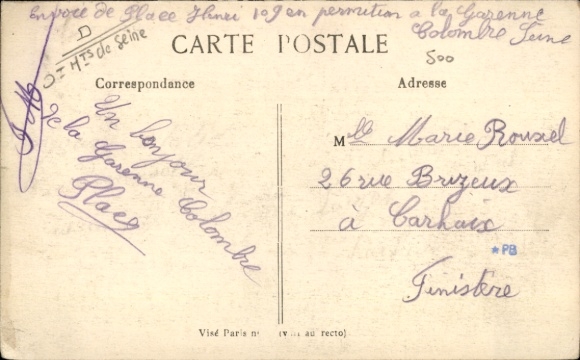 Envoie de Place Henri 109 en permition a la Garenne
Colombe Seine
D
Hts de Seine
500
CARTE POSTALE
Correspondance
Adresse
Un bonjour
de la Garenne Colombe
Place
Mlle Marie Rouxel
26 rue Brizeux
à Carhaix
*PB
Finistère
Visé Paris n° (v au recto)